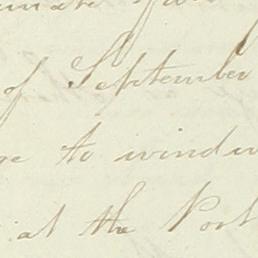 of September
to wind
at the Post